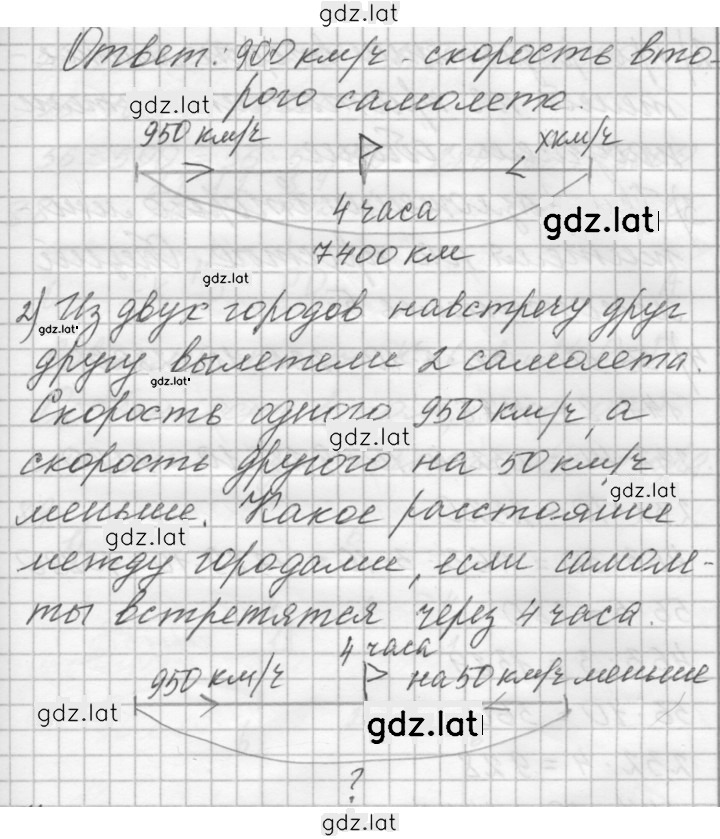 gdz.lat
Ответ: 900 км/ч - скорость вто-
gdz.lat рого самолета.
950 км/ч х км/ч
4 часа gdz.lat
7400 км
gdz.lat
2) Из двух городов навстречу друг
gdz.lat
другу вылетели 2 самолета.
gdz.lat
Скорость одного 950 км/ч, а
gdz.lat
скорость другого на 50 км/ч
gdz.lat
меньше. Какое расстояние
gdz.lat
между городами, если самоле-
ты встретятся через 4 часа.
4 часа
950 км/ч на 50 км/ч меньше
gdz.lat gdz.lat
?
gdz.lat